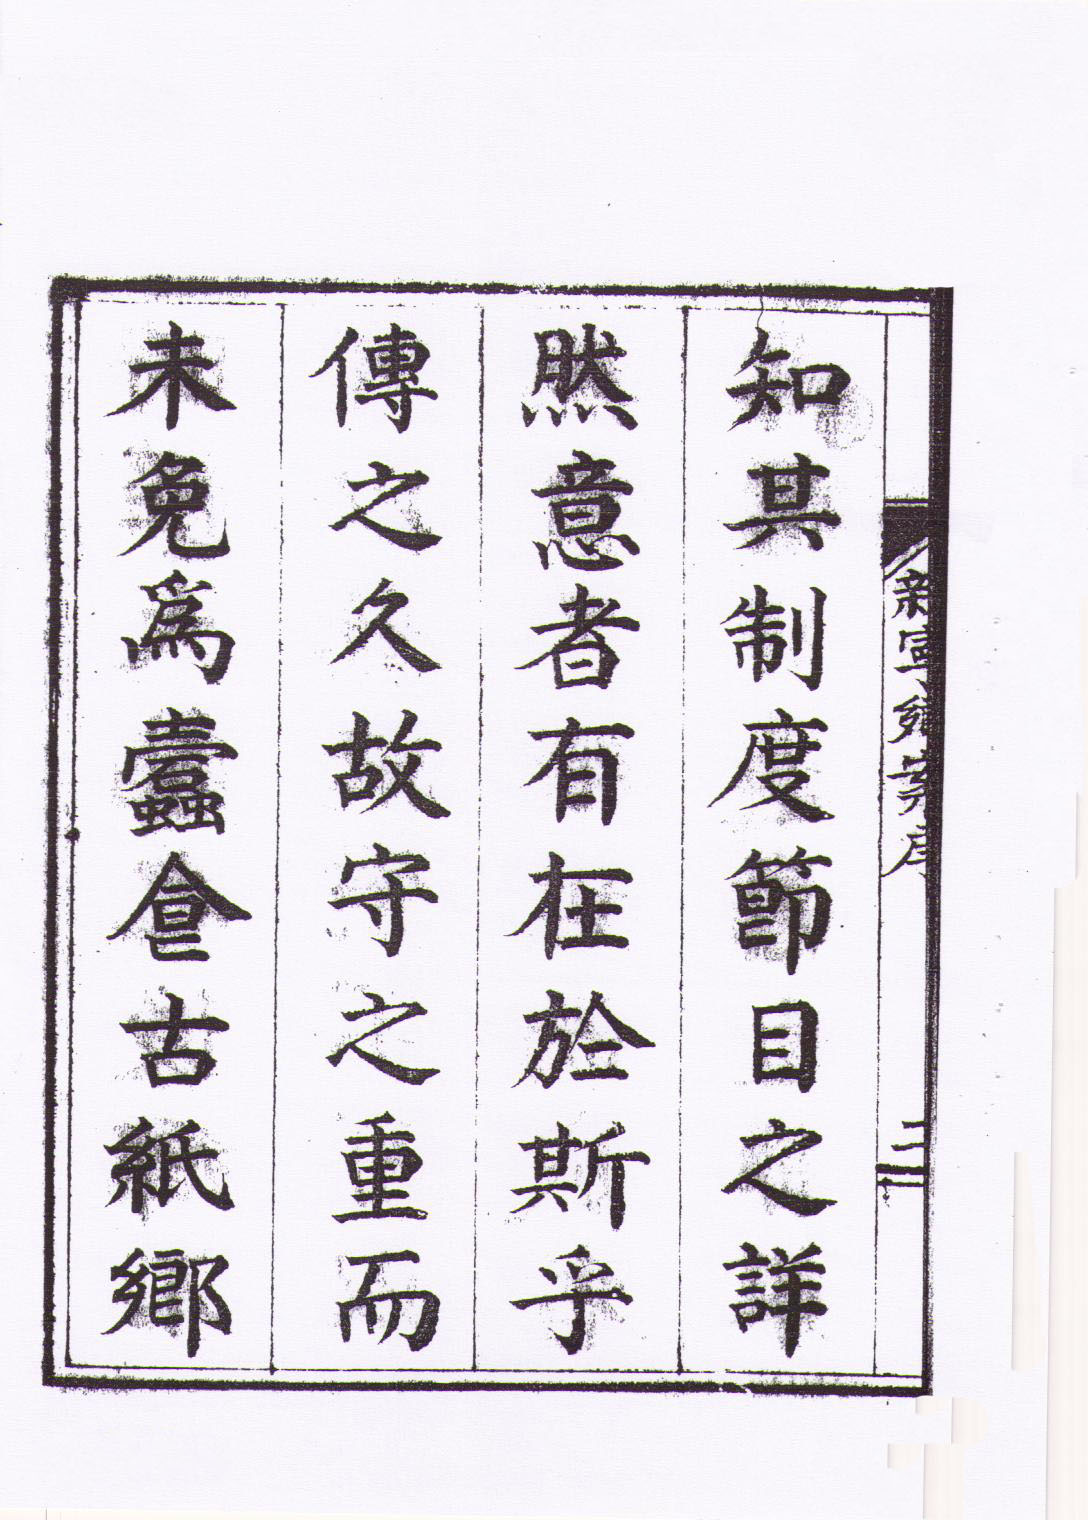 新寧序
知其制度節目之詳
然意者有在於斯乎
傳之久故守之重而
未免爲蠹食古紙鄉